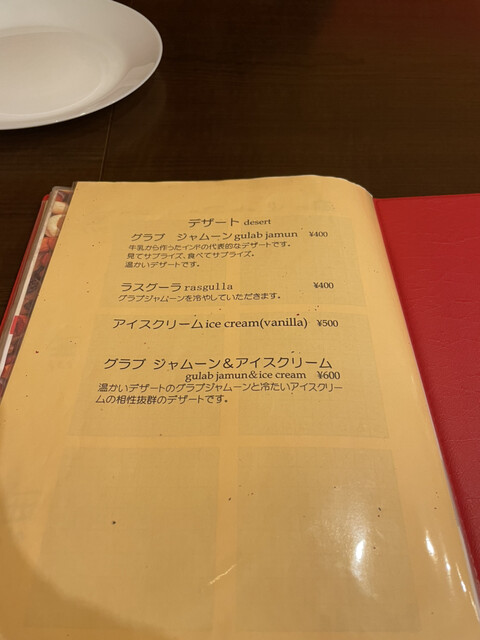 デザート desert
グラブ ジャムーン gulab jamun ¥400
牛乳から作ったインドの代表的なデザートです。
見てサプライズ、食べてサプライズ。
温かいデザートです。
ラスグーラ rasgulla ¥400
グラブジャムーンを冷やしていただきます。
アイスクリーム ice cream(vanilla) ¥500
グラブ ジャムーン&アイスクリーム
gulab jamun&ice cream ¥600
温かいデザートのグラブジャムーンと冷たいアイスクリー
ムの相性抜群のデザートです。